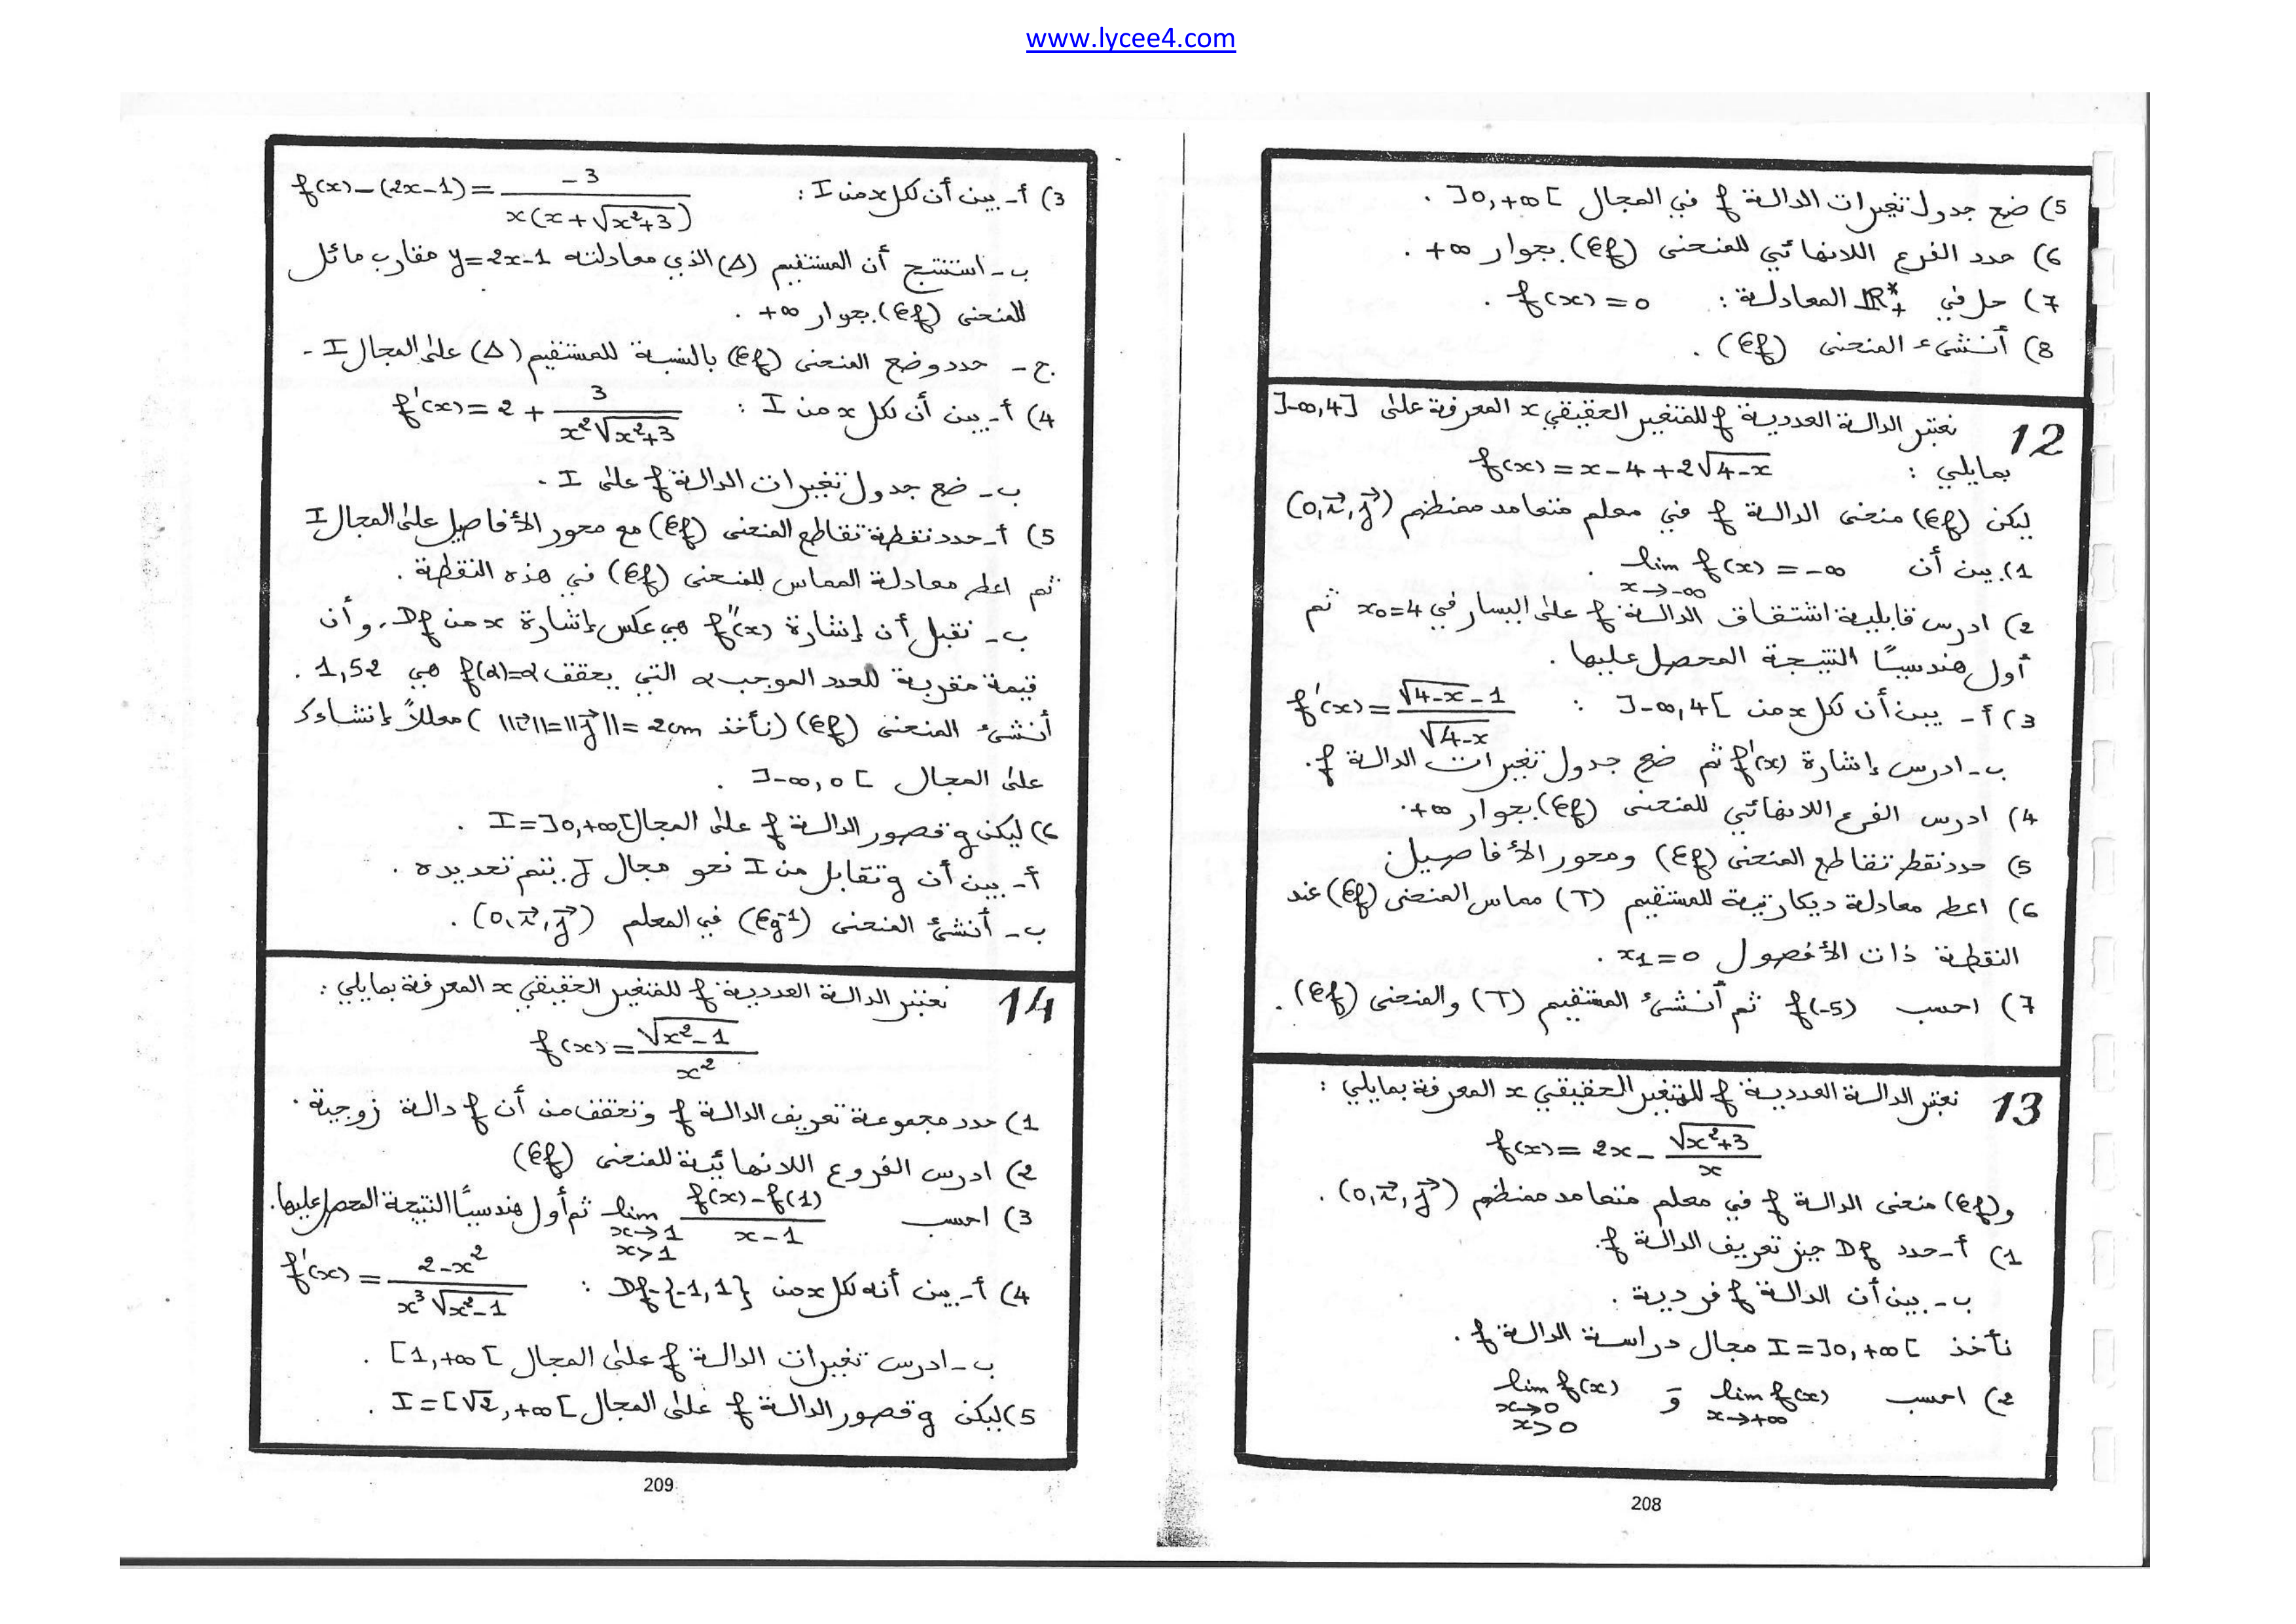 www.lycee4.com
5) ضع جدول تغيرات الدالة f في المجال ]0,+∞[ .
6) حدد الفرع اللانهائي للمنحنى (Cf) بجوار +∞ .
7) حل في IR*+ المعادلة : f(x)=0 .
8) أنشئ المنحنى (Cf) .
12 نعتبر الدالة العددية f للمتغير الحقيقي x المعرفة على ]-∞,4]
بمايلي : f(x)=x-4+2√(4-x)
ليكن (Cf) منحنى الدالة f في معلم متعامد ممنظم (O,i⃗,j⃗)
1) بين أن lim f(x)=-∞ .
x→-∞
2) ادرس قابلية اشتقاق الدالة f على اليسار في x₀=4 ثم
أول هندسيًا النتيجة المحصل عليها .
3) أ- يبين أن لكل x من ]-∞,4[ : f'(x)=(√(4-x)-1)/√(4-x)
ب- ادرس إشارة f'(x) ثم ضع جدول تغيرات الدالة f.
4) ادرس الفرع اللانهائي للمنحنى (Cf) بجوار +∞.
5) حدد نقط تقاطع المنحنى (Cf) ومحور الأفاصيل
6) اعط معادلة ديكارتية للمستقيم (T) مماس المنحنى (Cf) عند
النقطة ذات الأفصول x₁=0 .
7) احسب f(-5) ثم أنشئ المستقيم (T) والمنحنى (Cf).
13 نعتبر الدالة العددية f للمتغير الحقيقي x المعرفة بمايلي :
f(x)=2x-√(x²+3)/x
و(Cf) منحنى الدالة f في معلم متعامد ممنظم (O,i⃗,j⃗) .
1) أ- حدد Df حيز تعريف الدالة f.
ب- بين أن الدالة f فردية .
نأخذ I=]0,+∞[ مجال دراسة الدالة f .
2) احسب lim f(x) و lim f(x)
x→+∞ x→0
x>0
208
3) أ- بين أن لكل x من I : f(x)-(2x-1)=-3/(x(x+√(x²+3)))
ب- استنتج أن المستقيم (Δ) الذي معادلته y=2x-1 مقارب مائل
للمنحنى (Cf) بجوار +∞ .
ج- حدد وضع المنحنى (Cf) بالنسبة للمستقيم (Δ) على المجال I -
4) أ- بين أن لكل x من I : f'(x)=2+3/(x²√(x²+3))
ب- ضع جدول تغيرات الدالة f على I .
5) أ- حدد نقطة تقاطع المنحنى (Cf) مع محور الأفاصيل على المجال I
ثم اعط معادلة المماس للمنحنى (Cf) في هذه النقطة .
ب- نقبل أن إشارة f''(x) هي عكس إشارة x من Df، وأن
قيمة مقربة للعدد الموجب α التي يحقق f(α)=α هي 1,52 .
أنشئ المنحنى (Cf) (نأخذ ||i⃗||=||j⃗||=2cm ) معللاً إنشاءك
على المجال ]-∞,0[ .
6) ليكن g قصور الدالة f على المجال I=]0,+∞[ .
أ- بين أن g تقابل من I نحو مجال J يتم تحديده .
ب- أنشئ المنحنى (Cg⁻¹) في المعلم (O,i⃗,j⃗) .
14 نعتبر الدالة العددية f للمتغير الحقيقي x المعرفة بمايلي :
f(x)=√(x²-1)/x²
1) حدد مجموعة تعريف الدالة f وتحقق من أن f دالة زوجية .
2) ادرس الفروع اللانهائية للمنحنى (Cf)
3) احسب lim (f(x)-f(1))/(x-1) ثم أول هندسيًا النتيجة المحصل عليها.
x→1
x>1
4) أ- بين أنه لكل x من Df-{-1,1} : f'(x)=(2-x²)/(x³√(x²-1))
ب- ادرس تغيرات الدالة f على المجال [1,+∞[ .
5) ليكن g قصور الدالة f على المجال I=[√2,+∞[ .
209